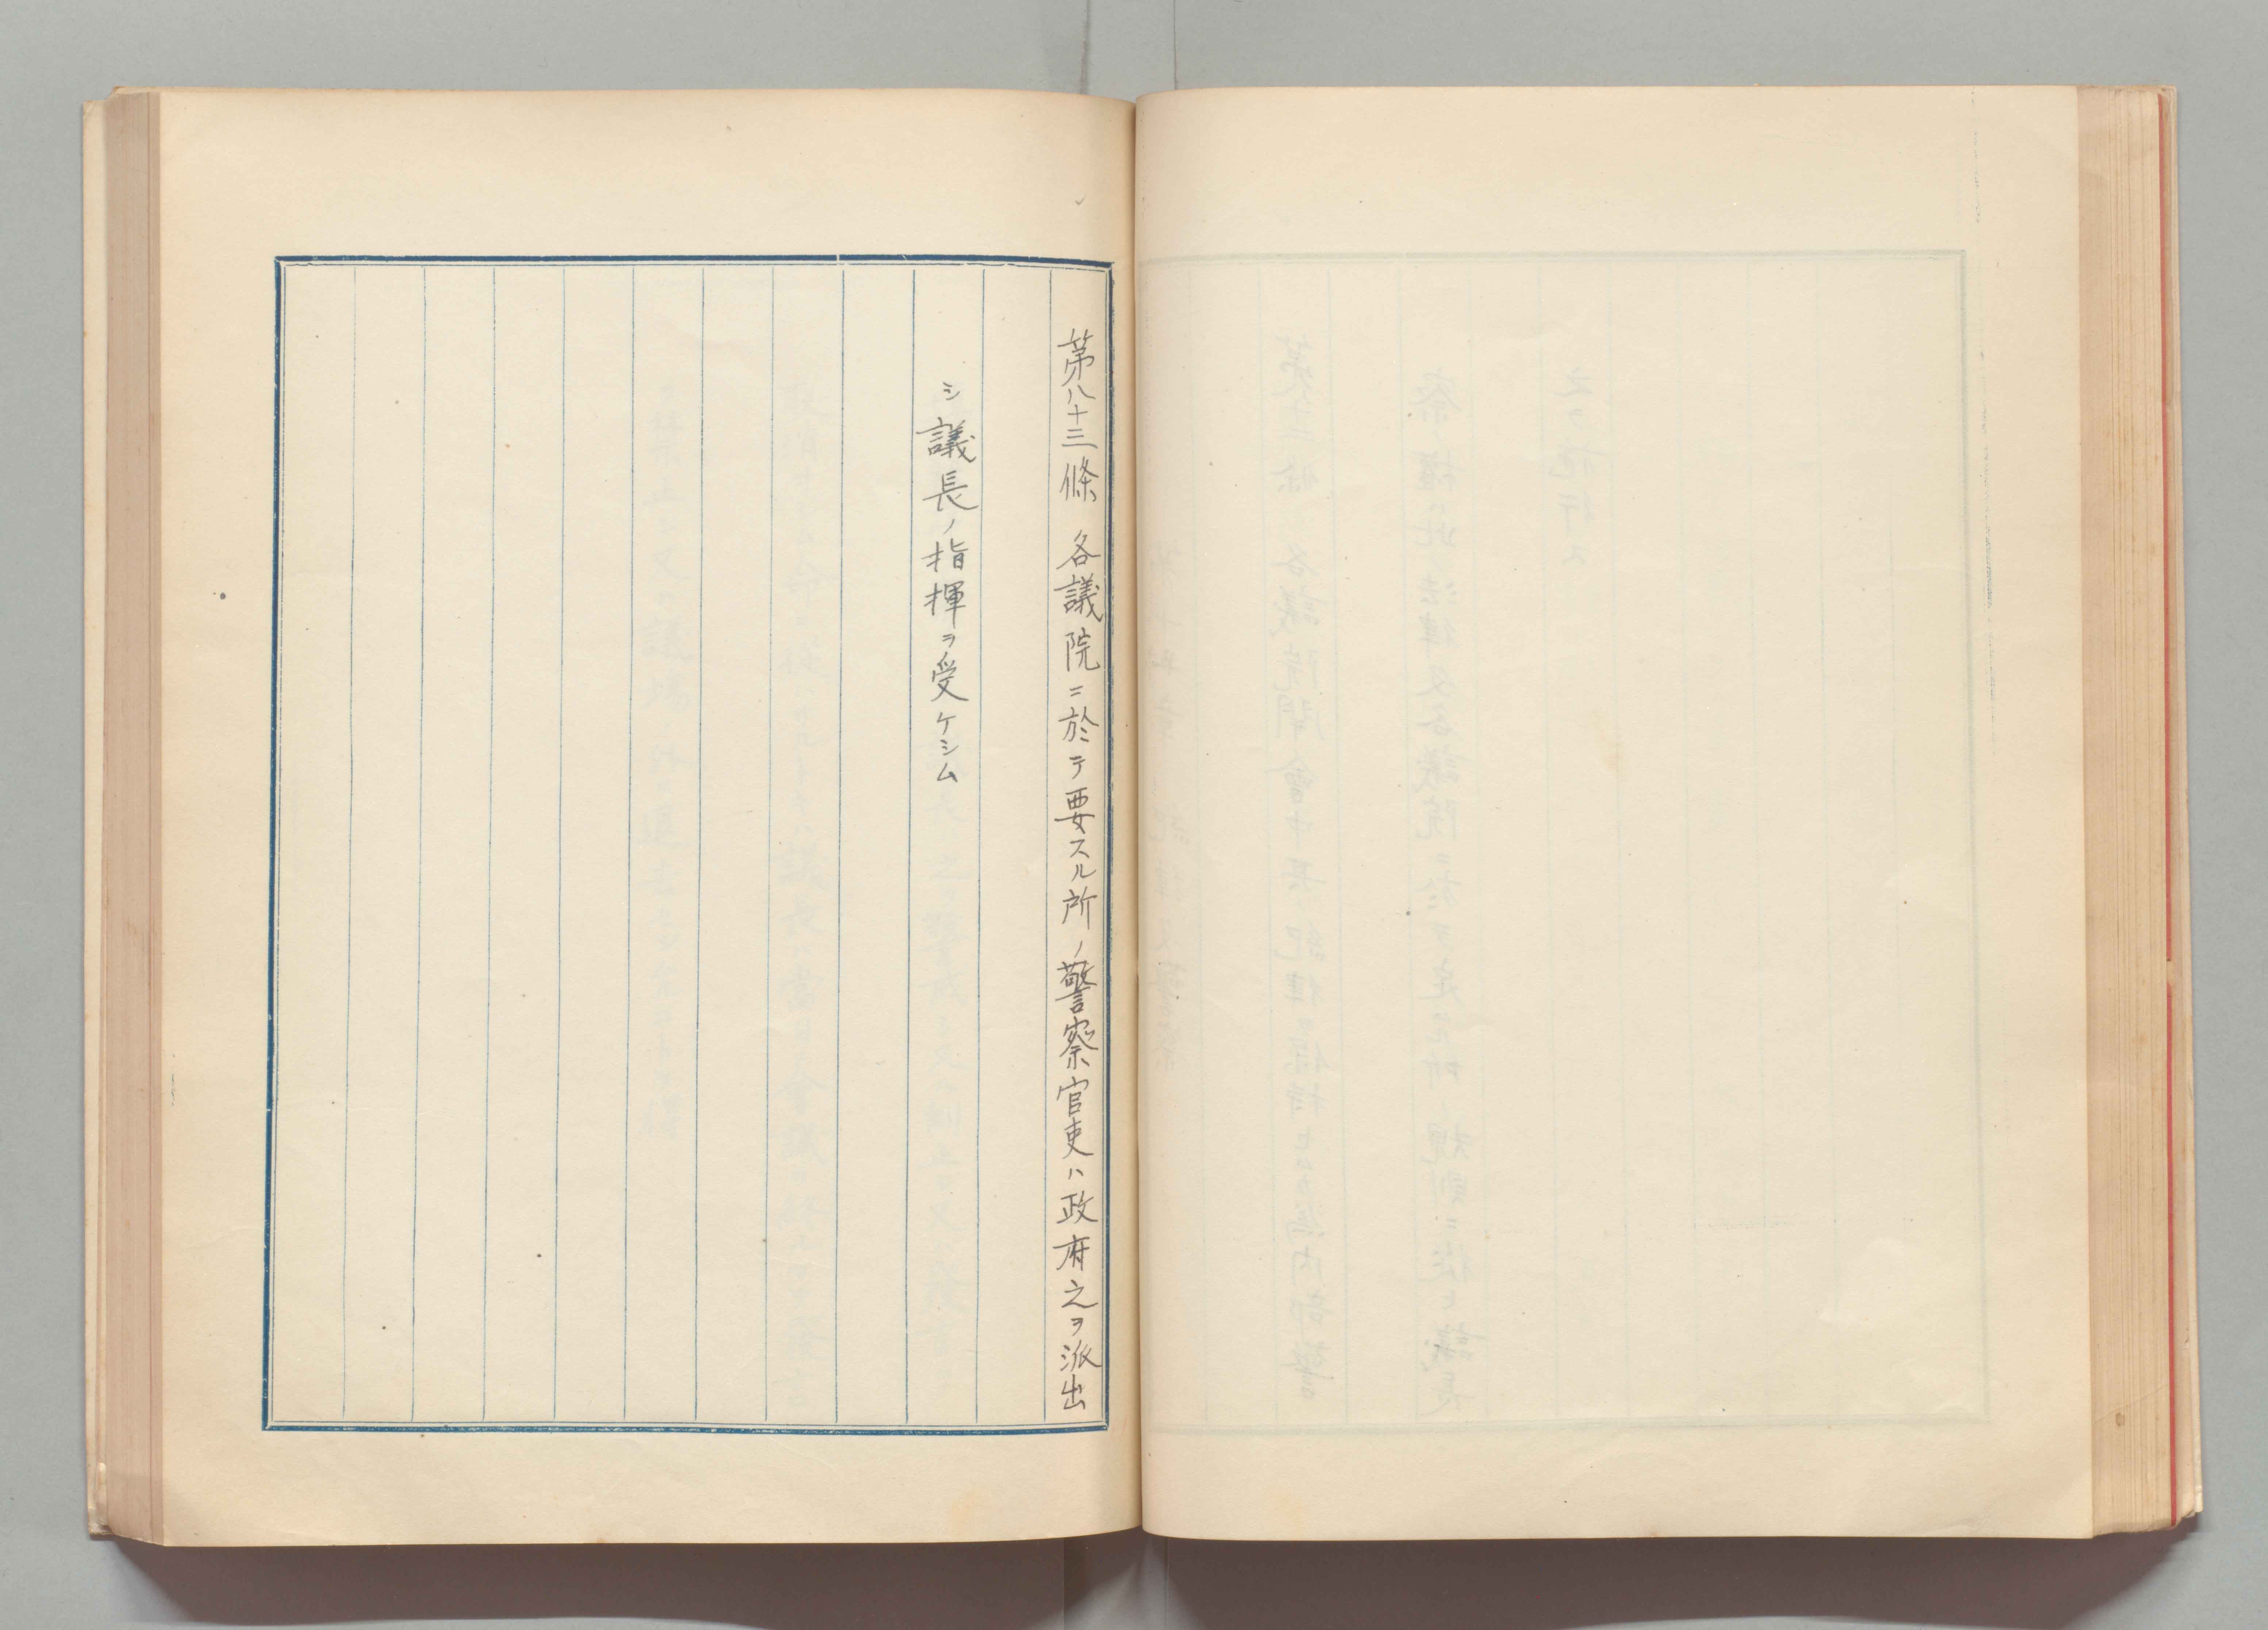 第八十三條 各議院ニ於テ要スル所ノ警察官吏ハ政府之ヲ派出
シ議長ノ指揮ヲ受ケシム